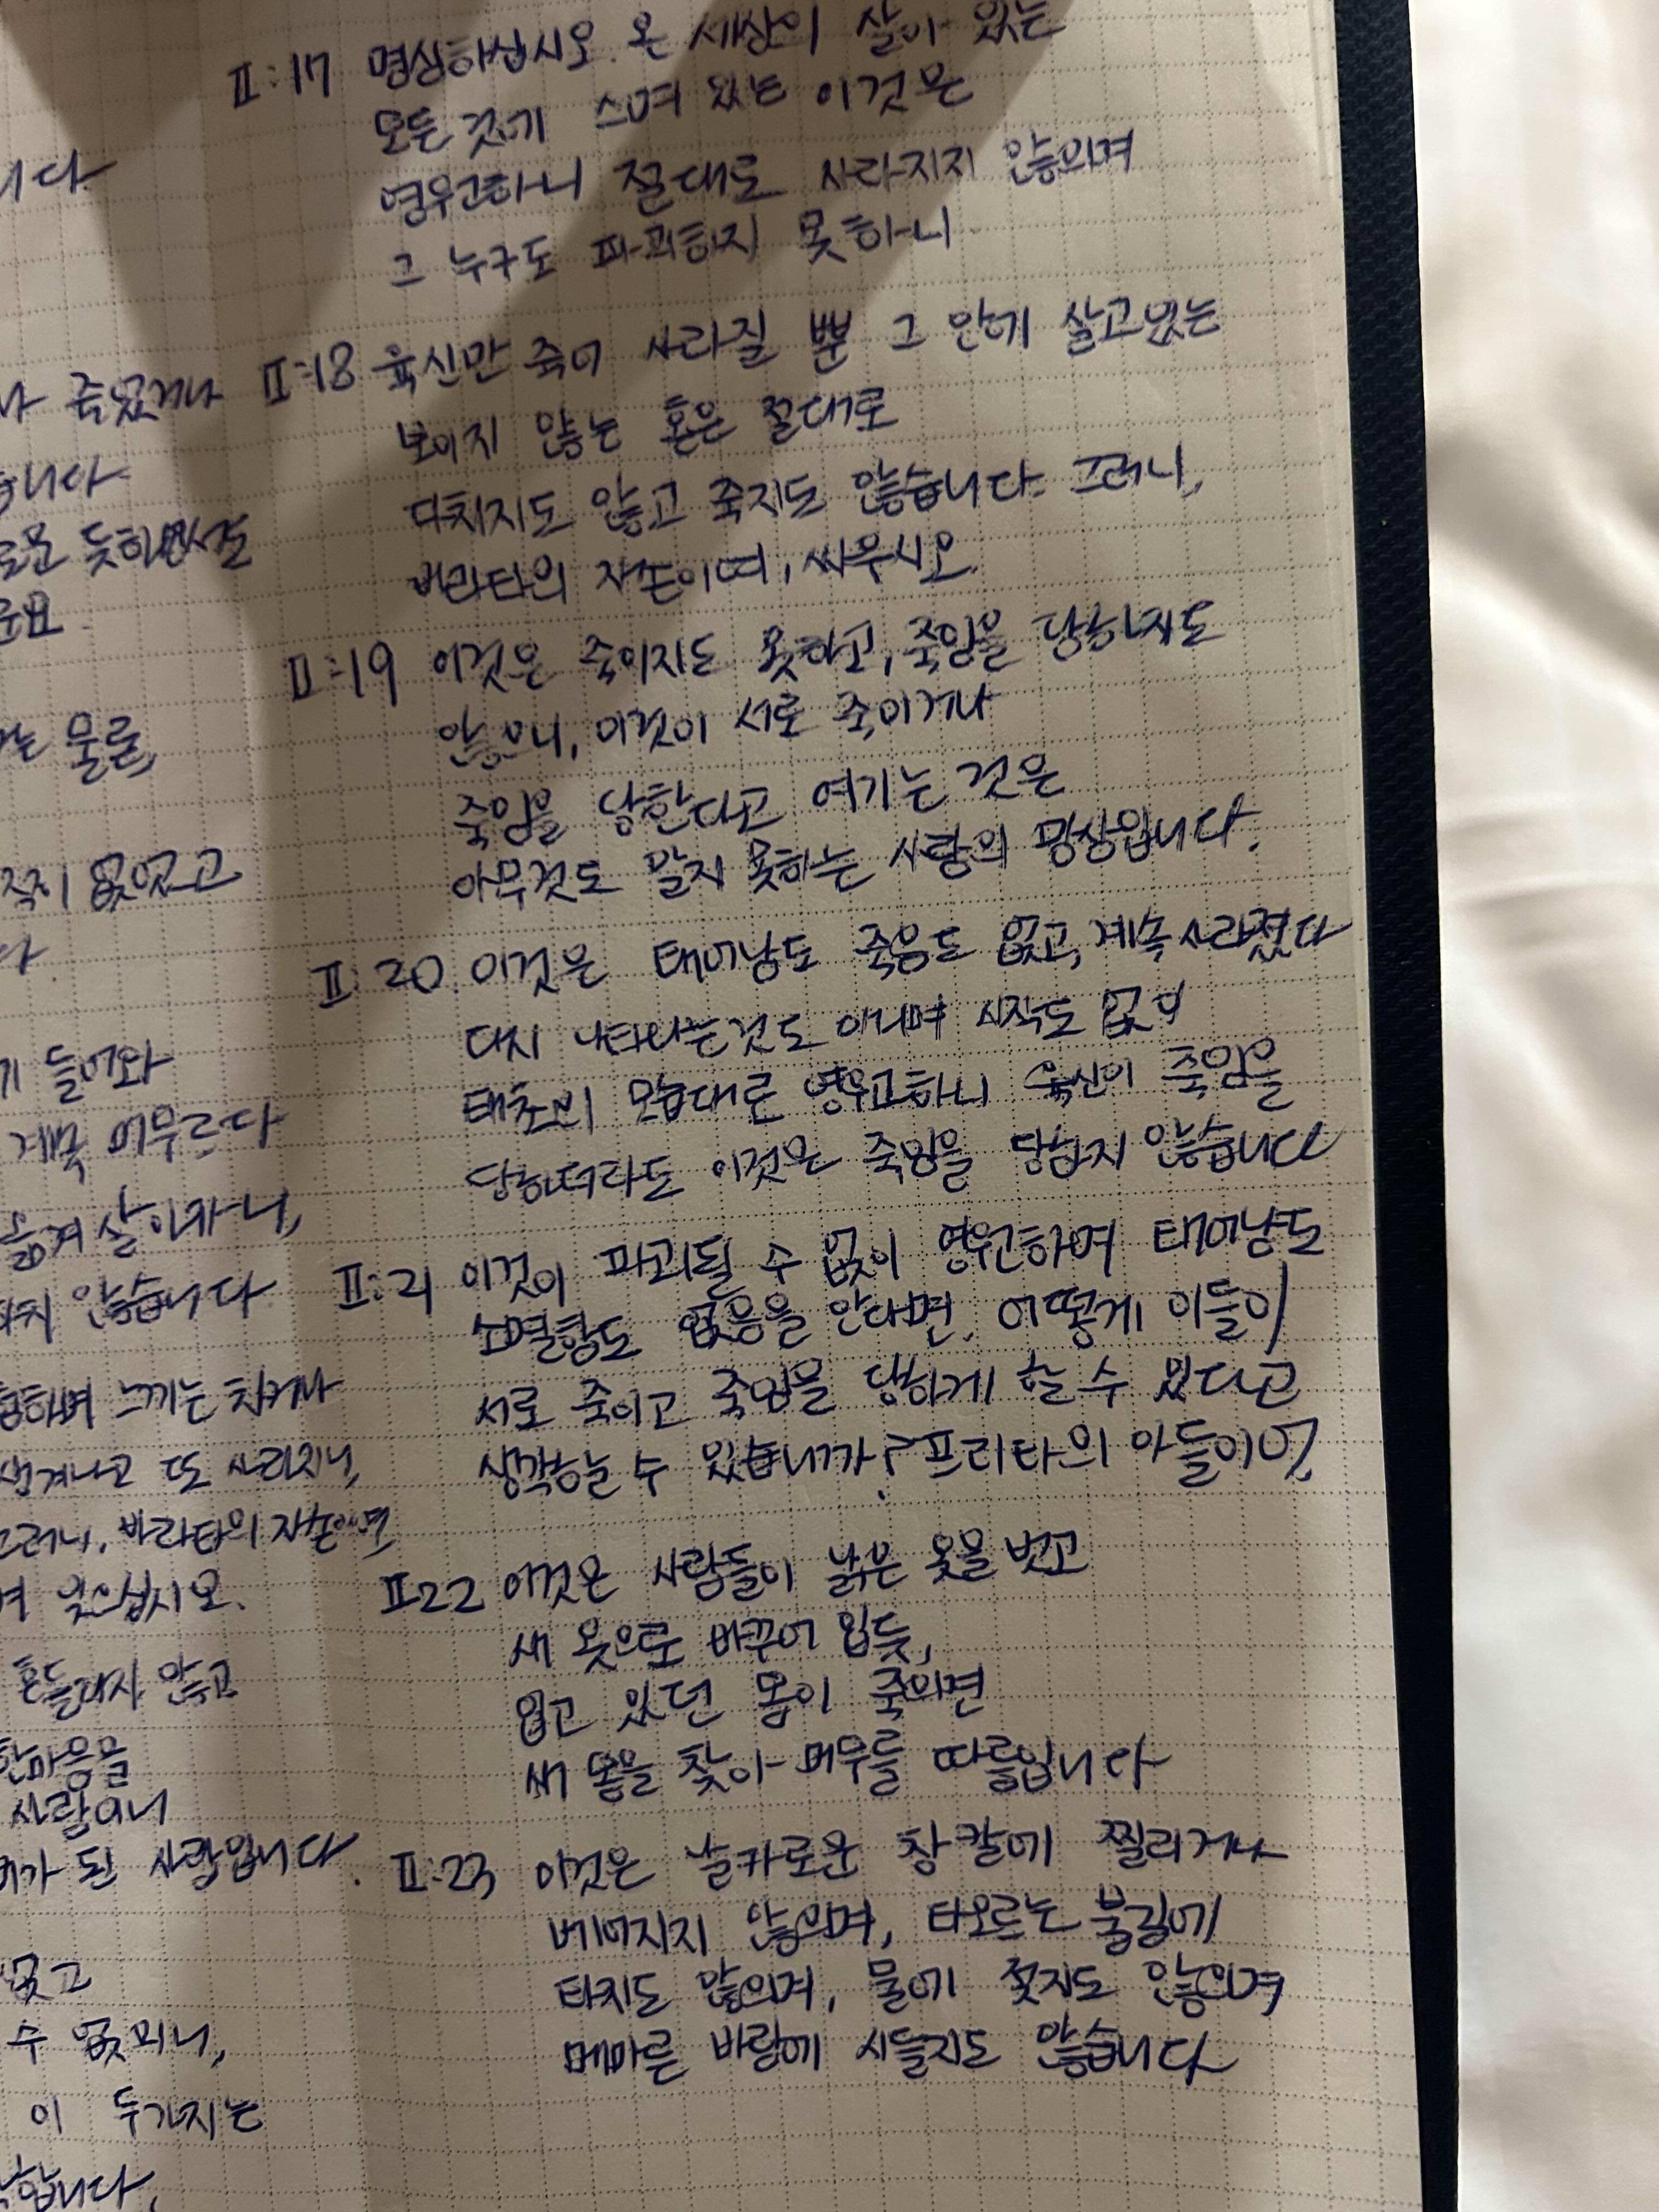 니다
나 죽었거나
습니다
로운 듯하면서도
군요
는 물론,
적이 없었고
다.
기 들어와
계속 머무르다
옮겨 살아가니,
하지 않습니다
접하며 느끼는 차거나
생겨나고 또 사라지니,
그러니, 바라타의 자손이여
며 잊으십시오.
흔들리지 않고
한마음을
사람이니
가 된 사람입니다.
없고
수 없으니,
이 두가지는
합니다.
II:17 명심하십시오. 온 세상의 살아 있는
모든 것에 스며 있는 이것은
영원하니 절대로 사라지지 않으며
그 누구도 파괴하지 못하니
II:18 육신만 죽어 사라질 뿐 그 안에 살고있는
보이지 않는 혼은 절대로
다치지도 않고 죽지도 않습니다. 그러니,
바라타의 자손이여, 싸우시오.
II:19 이것은 죽이지도 못하고, 죽임을 당하지도
않으니, 이것이 서로 죽이거나
죽임을 당한다고 여기는 것은
아무것도 알지 못하는 사람의 망상입니다.
II:20 이것은 태어남도 죽음도 없고, 계속 사라졌다
다시 나타나는것도 아니며 시작도 없이
태초의 모습대로 영원하니 육신이 죽임을
당하더라도 이것은 죽임을 당하지 않습니다
II:21 이것이 파괴될 수 없이 영원하며 태어남도
소멸함도 없음을 안다면, 어떻게 이들이
서로 죽이고 죽임을 당하게 할 수 있다고
생각할 수 있습니까? 프리타의 아들이여,
II22 이것은 사람들이 낡은 옷을 벗고
새 옷으로 바꾸어 입듯,
입고 있던 몸이 죽으면
새 몸을 찾아 머무를 따름입니다
II:23 이것은 날카로운 창칼에 찔리거나
베어지지 않으며, 타오르는 불길에
타지도 않으며, 물에 젖지도 않으며
메마른 바람에 시들지도 않습니다